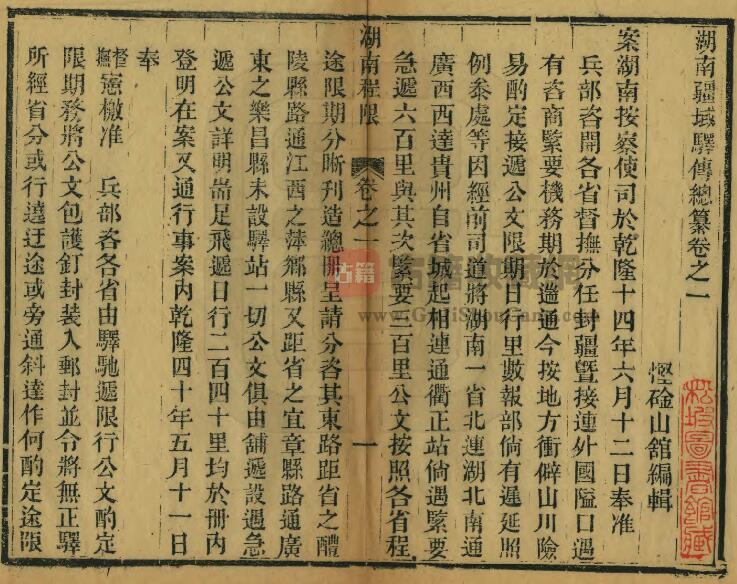 湖南疆域驛傳總纂卷之一
慳碒山舘編輯
案湖南按察使司於乾隆十四年六月十二日奉准
兵部咨開各省督撫分任封疆暨接連外國隘口遇
有咨商緊要機務期於遄通今按地方衝僻山川險
易酌定接遞公文限期日行里數報部倘有遲延照
例叅處等因經前司道將湖南一省北連湖北南通
廣西西達貴州自省城起相連通衢正站倘遇緊要
急遞六百里與其次緊要三百里公文按照各省程
湖南程限 卷之一 一
途限期分晰刋造總冊呈請分咨其東路距省之醴
陵縣路通江西之萍鄉縣又距省之宜章縣路通廣
東之樂昌縣未設驛站一切公文俱由舖遞設遇急
遞公文詳明耑足飛遞日行二百四十里均於冊內
登明在案又通行事案內乾隆四十年五月十一日
奉
督撫憲檄准 兵部咨各省由驛馳遞限行公文酌定
限期務將公文包護釘封装入郵封並令將無正驛
所經省分或行遶迂途或旁通斜達作何酌定途限
松坡圖書館藏
古籍